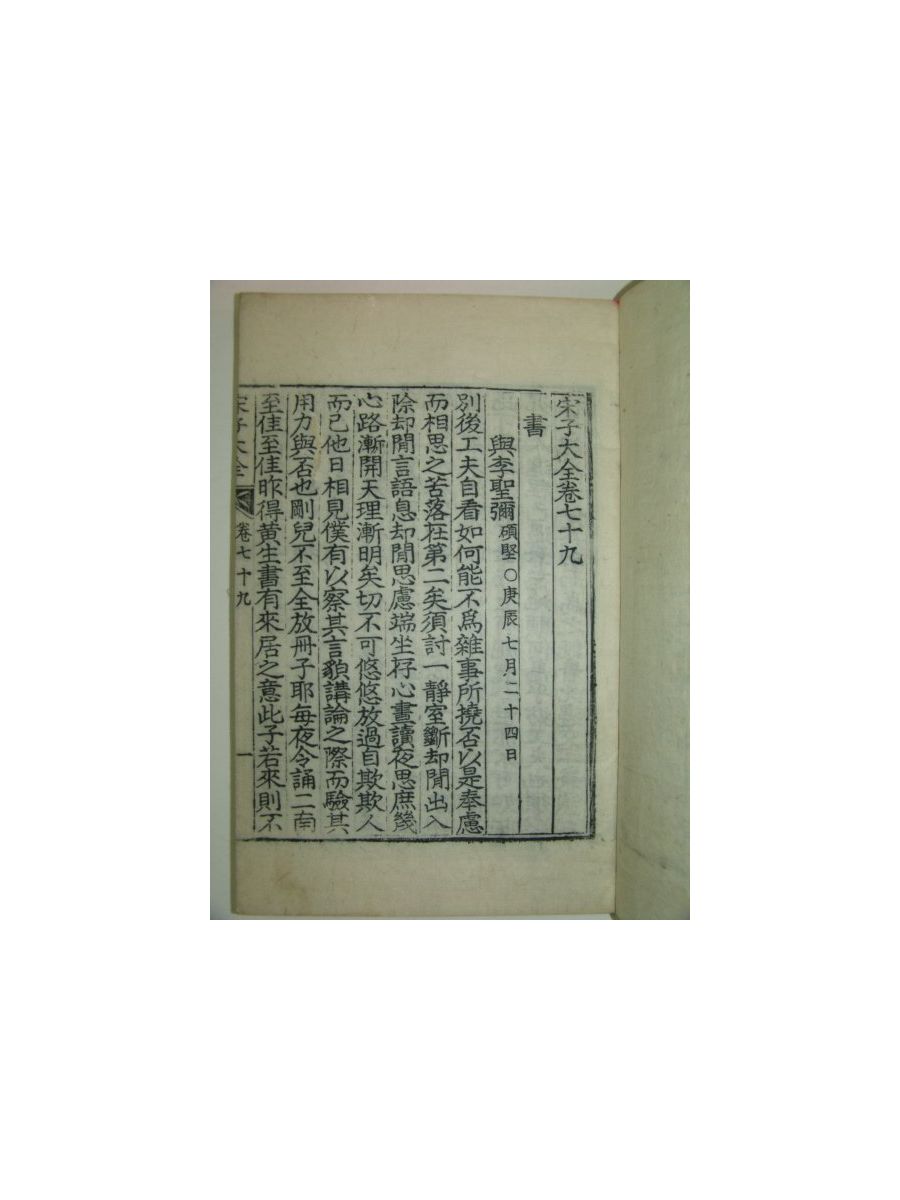 宋子大全卷七十九
書
與李聖彌碩堅○庚辰七月二十四日
別後工夫自看如何能不爲雜事所撓否以是奉慮
而相思之苦落在第二矣須討一靜室斷却閒出入
除却閒言語息却閒思慮端坐存心晝讀夜思庶幾
心路漸開天理漸明矣切不可悠悠放過自欺欺人
而已他日相見僕有以察其言貌講論之際而驗其
用力與否也剛兒不至全放冊子耶每夜令誦二南
至佳至佳昨得黃生書有來居之意此子若來則不
宋子大全 卷七十九 一